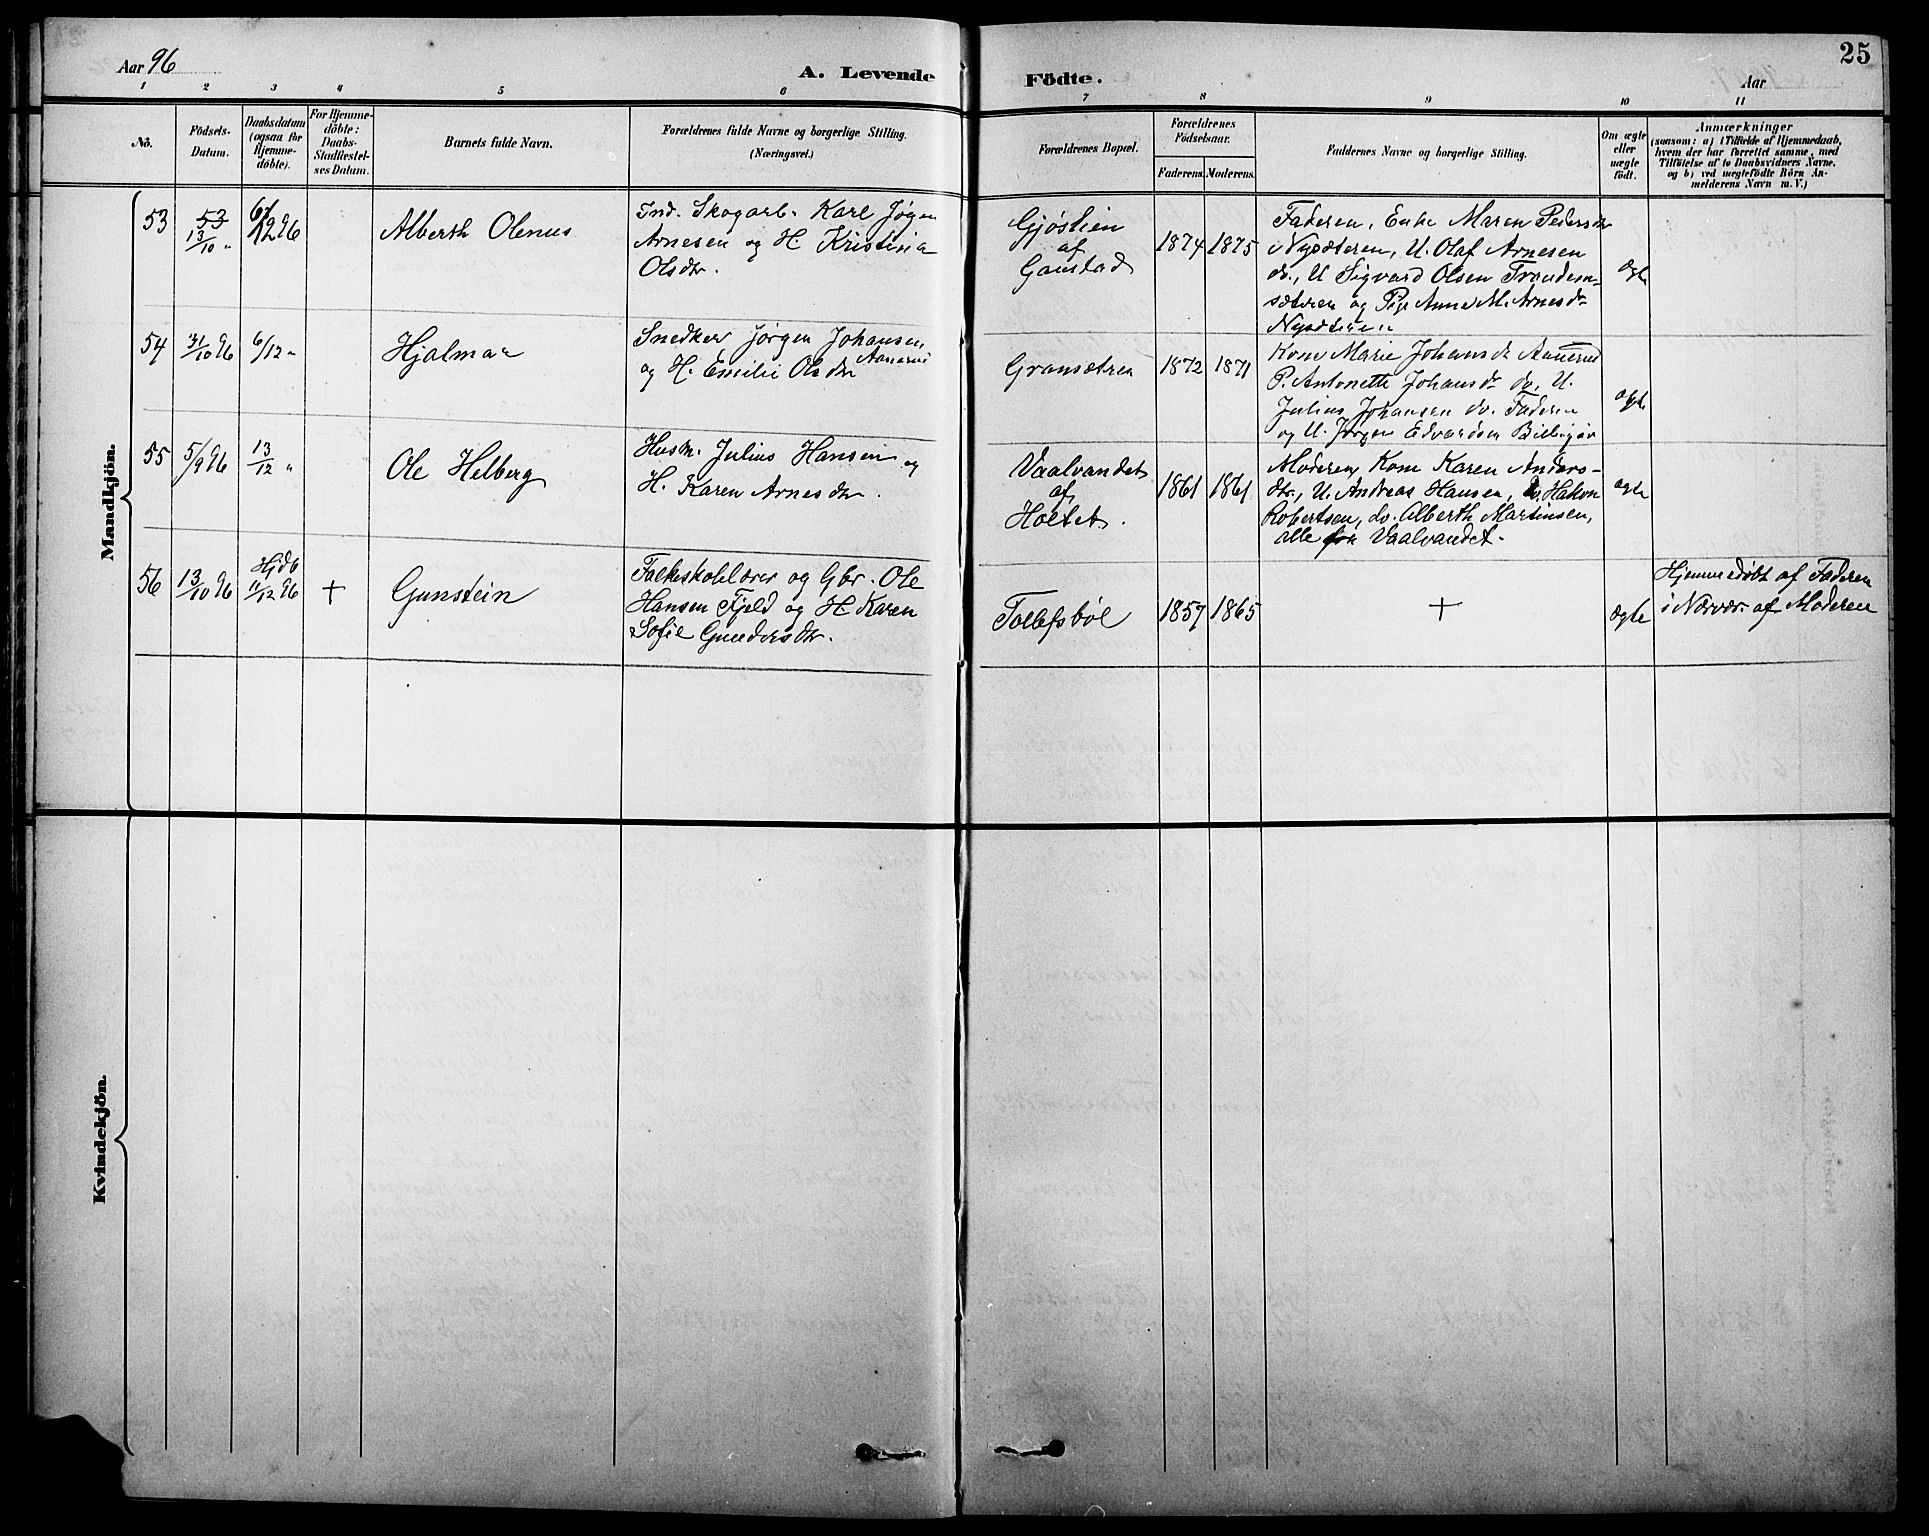 Aar 96
A. Levende Födte.
25
Aar
1 2 3 4 5 6 7 8 9 10 11
No.
Födsels-
Datum.
Daabsdatum
(ogsaa for
Hjemme-
döbte).
For Hjemme-
döbte:
Daabs-
Stadfæstel-
ses Datum.
Barnets fulde Navn.
Forældrenes fulde Navne og borgerlige Stilling.
(Næringsvei.)
Forældrenes Bopæl.
Forældrenes
Födselsaar.
Faderens. Moderens.
Faddernes Navne og borgerlige Stilling.
Om ægte
eller
uægte
födt.
Anmærkninger
(saasom: a) i Tilfælde af Hjemmedaab,
hvem der har forrettet samme, med
Tilföielse af to Daabsvidners Navne,
og b) ved uægtefödte Börn An-
melderens Navn m. V.)
Mandkjön.
53
53
13/10 "
6/12 96
Alberth Olenus
Ind. Skogarb. Karl Jørgen
Arnesen og H. Kristina
Olsdtr.
Gjøstien
af
Gaustad
1874 1875
Faderen, Enke Maren Pedersdtr
i Nysæteren, U. Olaf Arnesen
do., U Sigvard Olsen Trondsm-
sæteren og Pige Anne M. Arnesdr
Nysæteren
Ægte
54
31/10 96
6/12 "
Hjalmar
Snedker Jørgen Johansen
og H. Emilie Olsdtr Aanerud
Gransætren
1872 1871
Kone Marie Johansdr Aanerud
P. Antonette Johansdr do, U.
Julius Johansen do. Faderen
og U. Jørgen Edvardsen
ægte
55
5/9 96
13/12 "
Ole Helberg
Husm. Julius Hansen og
H. Karen Arnesdtr.
Vaalvandet
af
Holtet.
1861 1861
Moderen, Kone Karen Anders-
dtr., U. Andreas Hansen, do. Hakon
Robertsen, do. Alberth Martinsen,
alle fra Vaalvandet.
ægte
56
13/10 96
Hjdb
11/12 96
+
Gunstein
Folkeskolelærer og Gbr. Ole
Hansen Fjeld og H Karen
Sofie Gundersdtr.
Tollefsbøl
1857 1865
+
Ægte
Hjemmedøbt af Faderen
i Nærvær. af Moderen
Kvindekjön.